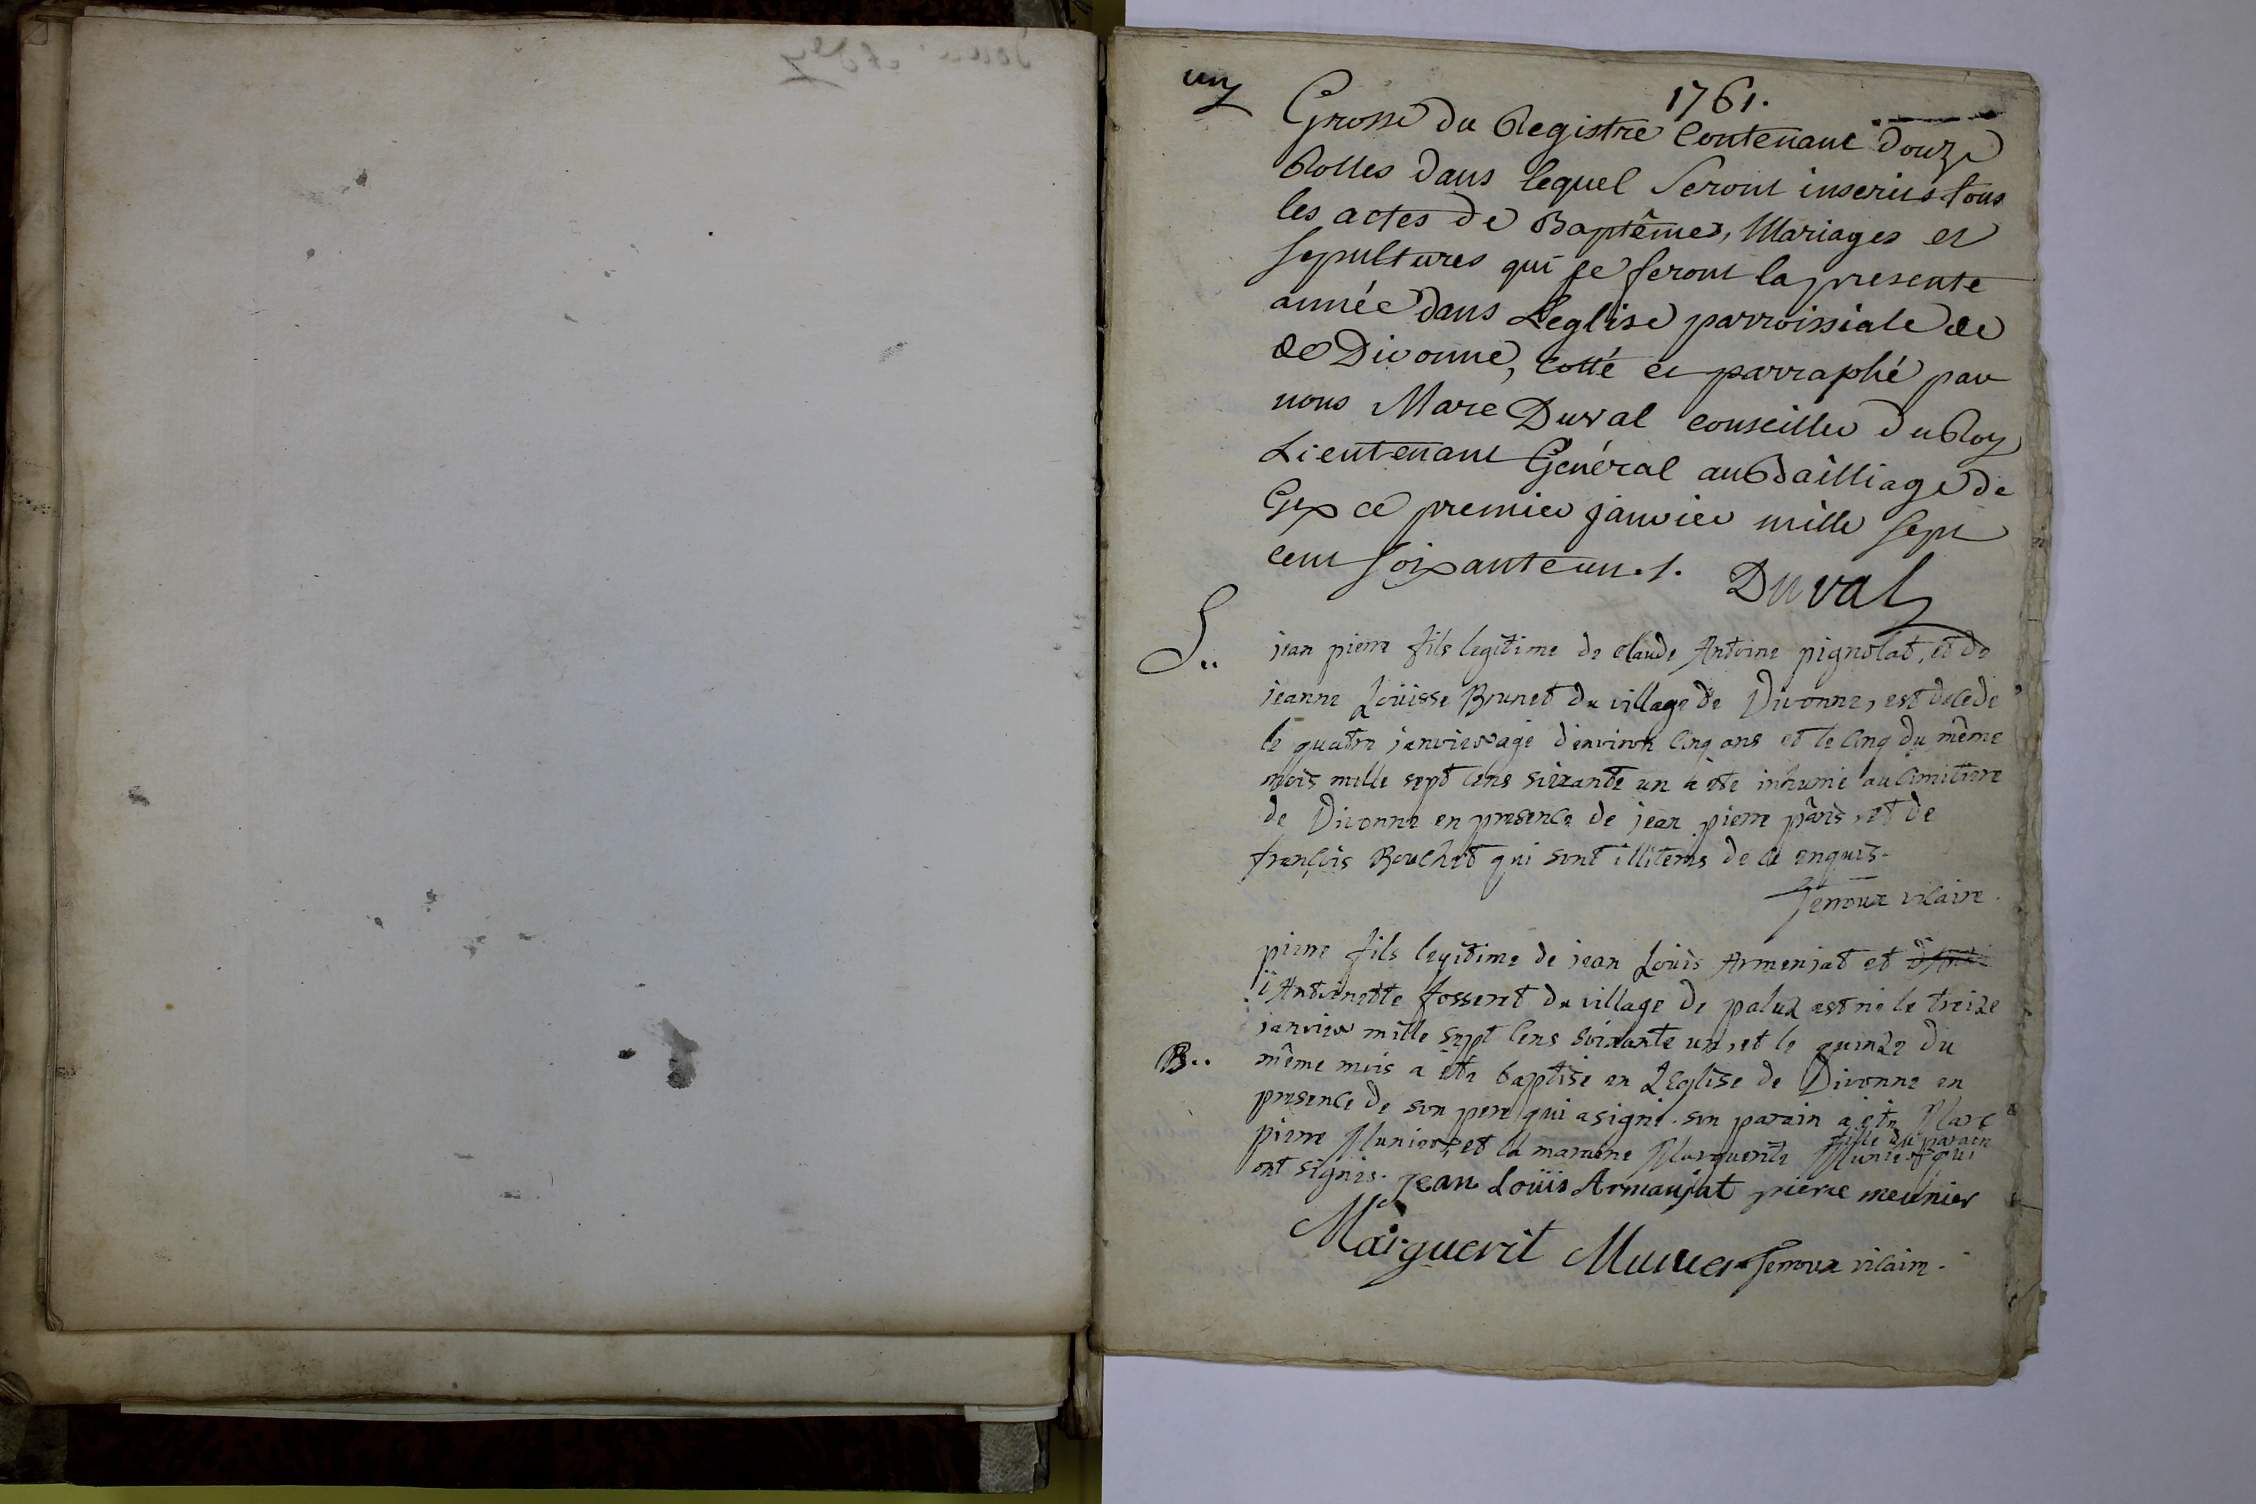 un
1761.
Grosse du Registre Contenant douze
Rolles dans lequel Seront inserits tous
les actes de Baptêmes, Mariages et
Sepultures qui se feront la presente
année dans L'eglise parroissiale de
de Divonne, Cotté et parraphé par
nous Marc Duval Conseiller du Roy
Lieutenant Général au Bailliage de
Gex ce premier janvier mille sept
cent soixante un ./.
Duval
S..
jean pierre fils legitime de claude Antoine pignolat, et de
jeanne Loüisse Brunet du village de Divonne, est decede
le quatre janvier agé d'environ cinq ans et le cinq du même
mois mille sept cens soixante un a ete inhumé au Cimitiere
de Divonne en presence de jean pierre pâris, et de
françois Bouchet qui sont illiterés de ce enquis.
Jenoux vicaire.
pierre fils legitime de jean Loüis Armenjat et
d'Antoinette fosseret du village de paluz est né le treize
janvier mille sept cens soixante un, et le quinze du
B..
même mois a été baptisé en L'Eglise de Divonne en
presence de son pere qui a signé. son parain a été Marc
pierre Munier, et la maraine Marguerite Munier fille du parain qui
ont signés. jean Loüis Armanjat pierre meunier
Marguerit Munier Jenoux vicaire.